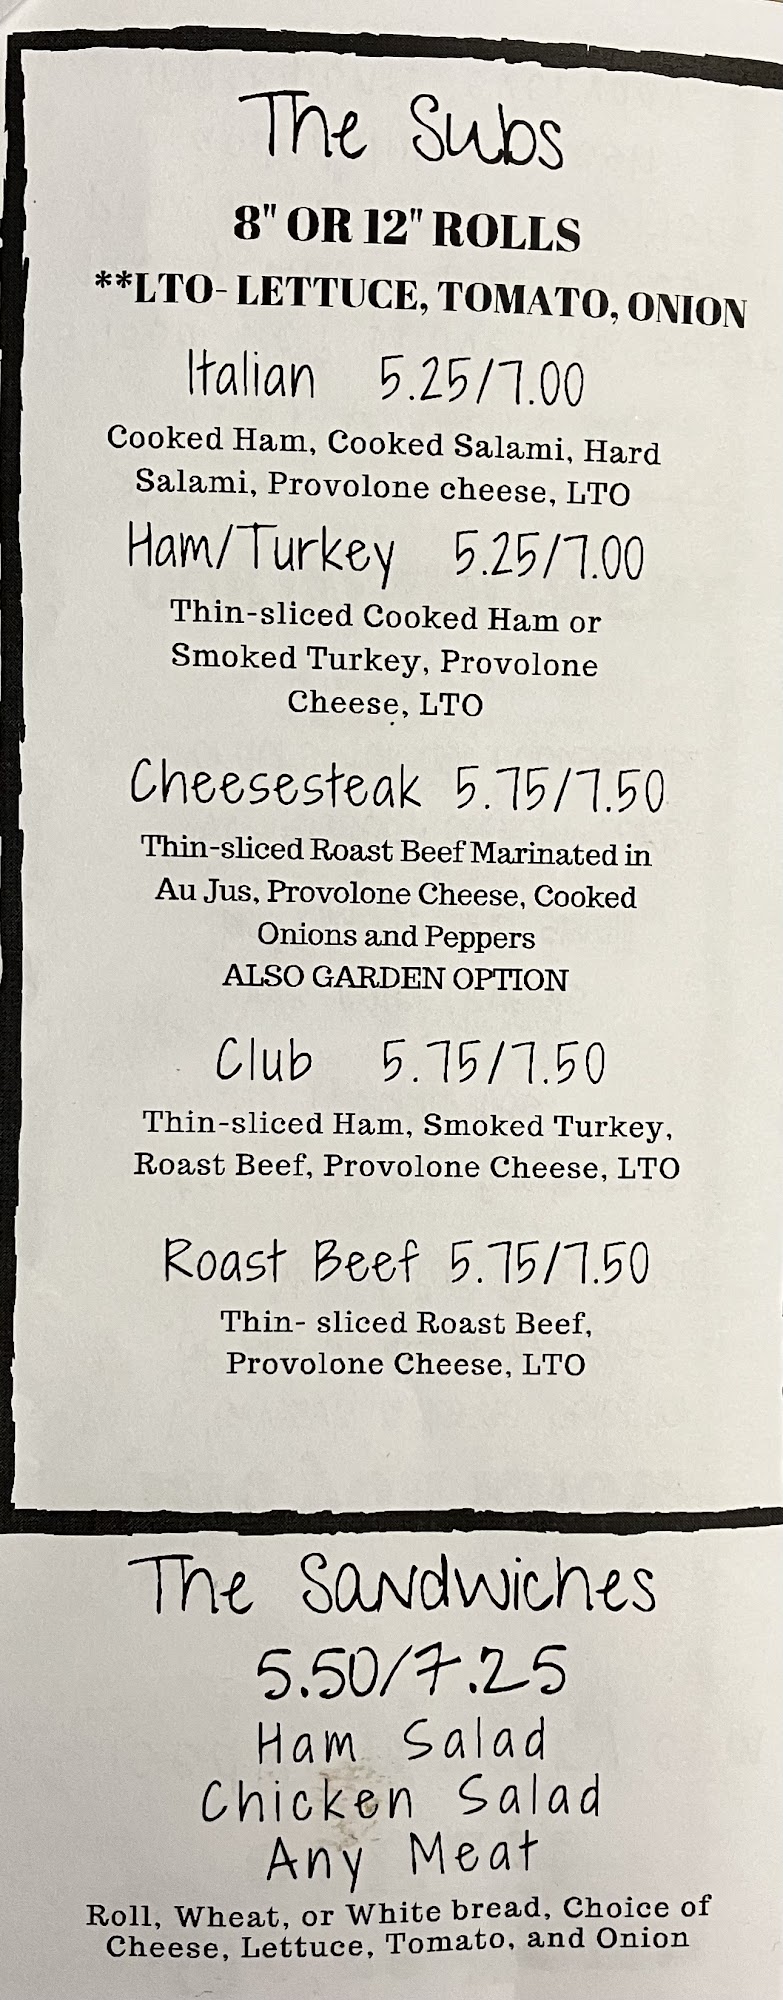 The Subs
8" OR 12" ROLLS
**LTO- LETTUCE, TOMATO, ONION
Italian 5.25/7.00
Cooked Ham, Cooked Salami, Hard
Salami, Provolone cheese, LTO
Ham/Turkey 5.25/7.00
Thin-sliced Cooked Ham or
Smoked Turkey, Provolone
Cheese, LTO
Cheesesteak 5.75/7.50
Thin-sliced Roast Beef Marinated in
Au Jus, Provolone Cheese, Cooked
Onions and Peppers
ALSO GARDEN OPTION
Club 5.75/7.50
Thin-sliced Ham, Smoked Turkey,
Roast Beef, Provolone Cheese, LTO
Roast Beef 5.75/7.50
Thin- sliced Roast Beef,
Provolone Cheese, LTO
The Sandwiches
5.50/7.25
Ham Salad
Chicken Salad
Any Meat
Roll, Wheat, or White bread, Choice of
Cheese, Lettuce, Tomato, and Onion